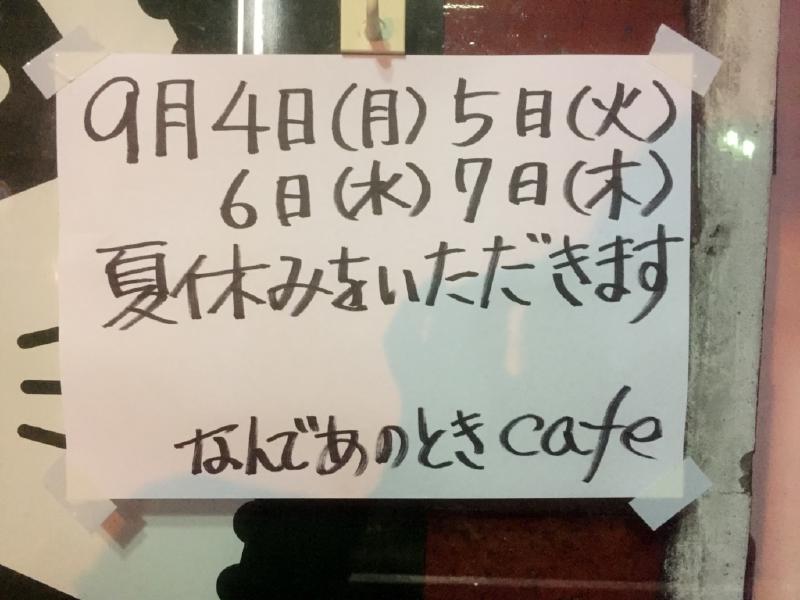 9月4日(月)5日(火)
6日(水)7日(木)
夏休みをいただきます
なんであのときcafe